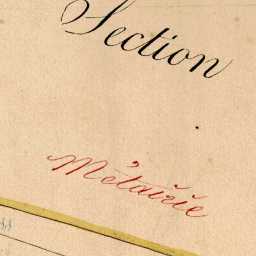 Section
Métairie